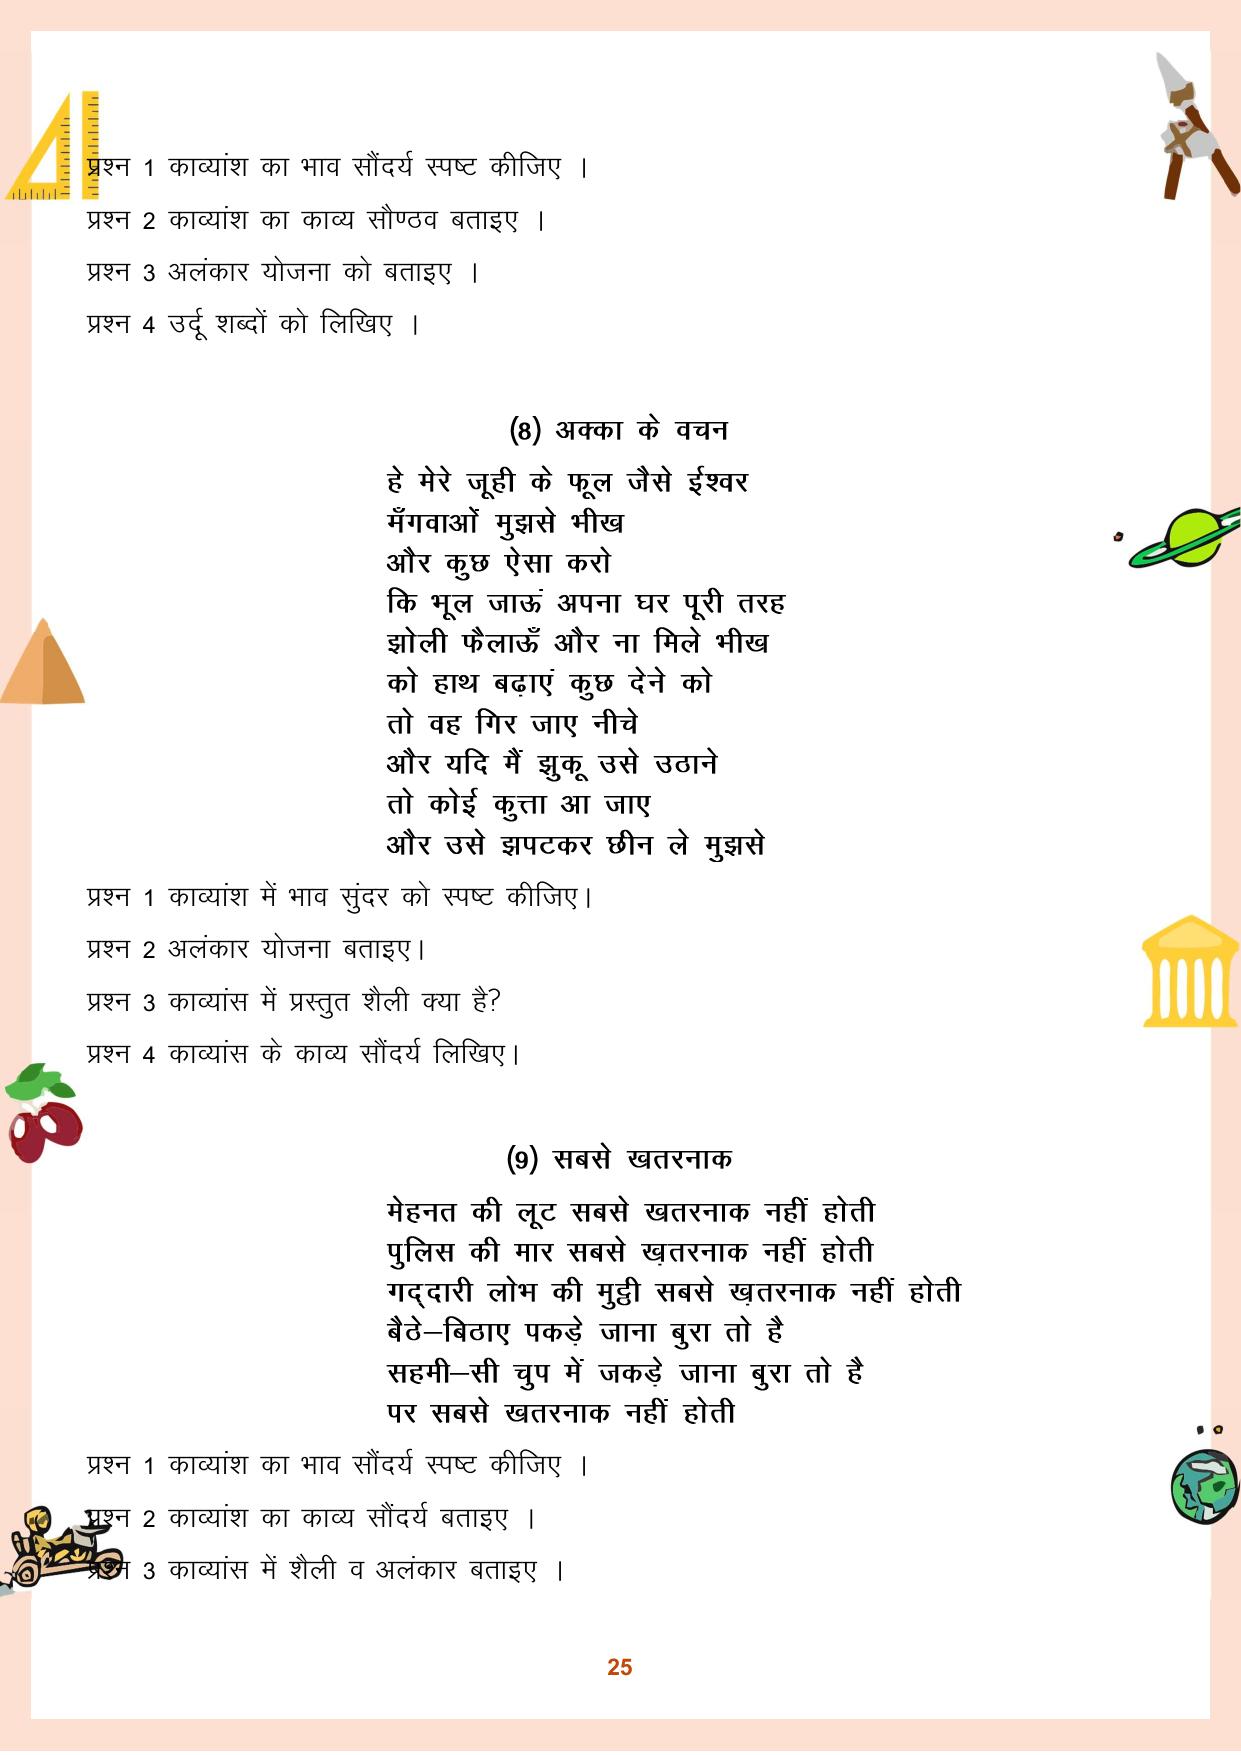 प्रश्न 1 काव्यांश का भाव सौंदर्य स्पष्ट कीजिए ।
प्रश्न 2 काव्यांश का काव्य सौण्ठव बताइए ।
प्रश्न 3 अलंकार योजना को बताइए ।
प्रश्न 4 उर्दू शब्दों को लिखिए ।
(8) अक्का के वचन
हे मेरे जूही के फूल जैसे ईश्वर
मँगवाओं मुझसे भीख
और कुछ ऐसा करो
कि भूल जाऊं अपना घर पूरी तरह
झोली फैलाऊँ और ना मिले भीख
को हाथ बढ़ाएं कुछ देने को
तो वह गिर जाए नीचे
और यदि मैं झुकू उसे उठाने
तो कोई कुत्ता आ जाए
और उसे झपटकर छीन ले मुझसे
प्रश्न 1 काव्यांश में भाव सुंदर को स्पष्ट कीजिए।
प्रश्न 2 अलंकार योजना बताइए।
प्रश्न 3 काव्यांस में प्रस्तुत शैली क्या है?
प्रश्न 4 काव्यांस के काव्य सौंदर्य लिखिए।
(9) सबसे खतरनाक
मेहनत की लूट सबसे खतरनाक नहीं होती
पुलिस की मार सबसे ख़तरनाक नहीं होती
गद्‌दारी लोभ की मुट्ठी सबसे ख़तरनाक नहीं होती
बैठे–बिठाए पकड़े जाना बुरा तो है
सहमी–सी चुप में जकड़े जाना बुरा तो है
पर सबसे खतरनाक नहीं होती
प्रश्न 1 काव्यांश का भाव सौंदर्य स्पष्ट कीजिए ।
प्रश्न 2 काव्यांश का काव्य सौंदर्य बताइए ।
प्रश्न 3 काव्यांस में शैली व अलंकार बताइए ।
25